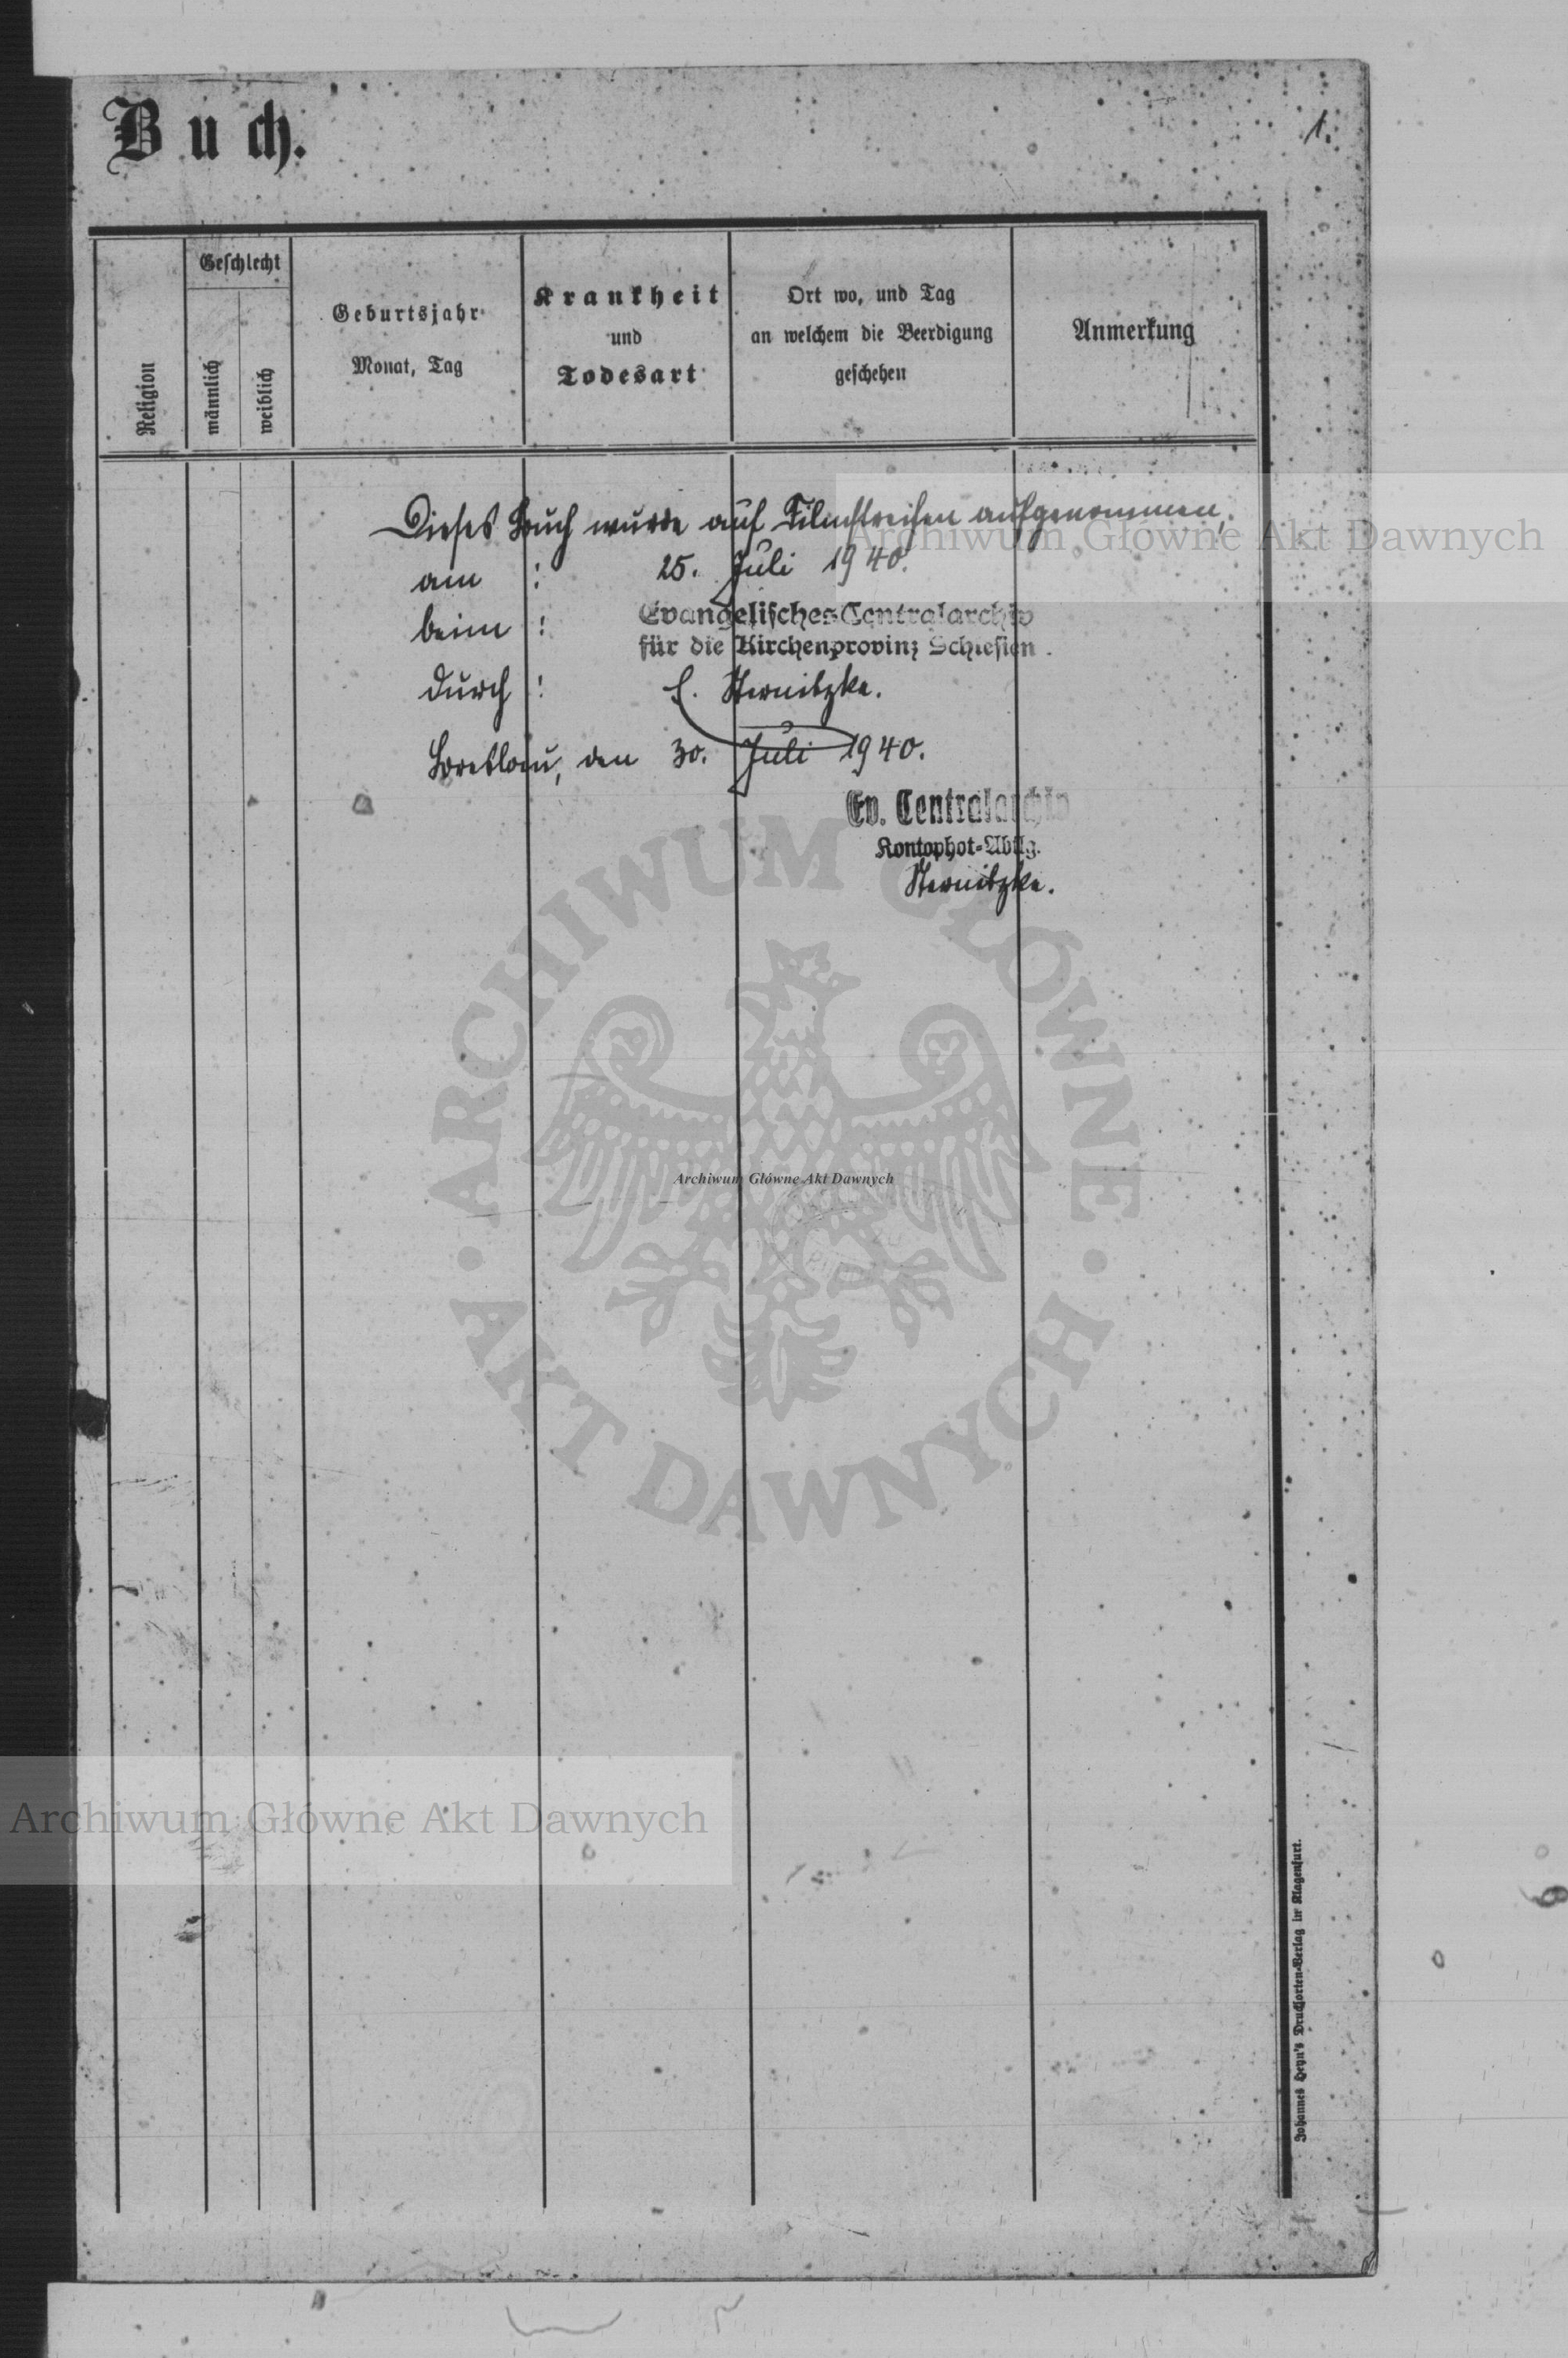 Buch.
1.
Religion
Geschlecht
männlich
weiblich
Geburtsjahr
Monat, Tag
Krankheit
und
Todesart
Ort wo, und Tag
an welchem die Beerdigung
geschehen
Anmerkung
Dieses Buch wurde auf Filmstreifen aufgenommen,
am : 25. Juli 1940.
beim : Evangelisches Centralarchiv
für die Kirchenprovinz Schlesien.
durch : E. Sternitzke.
Breslau, den 30. Juli 1940.
Ev. Centralarchiv
Kontophot-Abtlg.
Sternitzke.
Archiwum Główne Akt Dawnych
ARCHIWUM GŁÓWNE
AKT DAWNYCH
Archiwum Główne Akt Dawnych
Archiwum Główne Akt Dawnych
Johannes Heyn's Drucksorten-Verlag in Klagenfurt.